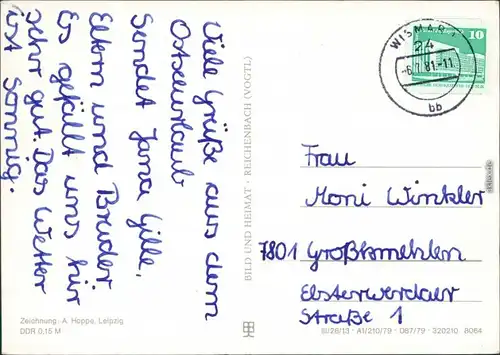 Viele Grüße aus dem
Ostseeurlaub
Sendet Jana Gille,
Eltern und Bruder.
Es gefällt uns hir
sehr gut. Das Wetter
ist Sonnig.
Zeichnung: A. Hoppe, Leipzig
DDR 0,15 M
BILD UND HEIMAT · REICHENBACH (VOGTL)
WISMAR 1
24
-6.7.81-11
bb
10
Frau
Moni Winkler
7801 Großkmehlen
Elsterwerdaer
Straße 1
III/26/13 · A1/210/79 · 087/79 · 320210 8064